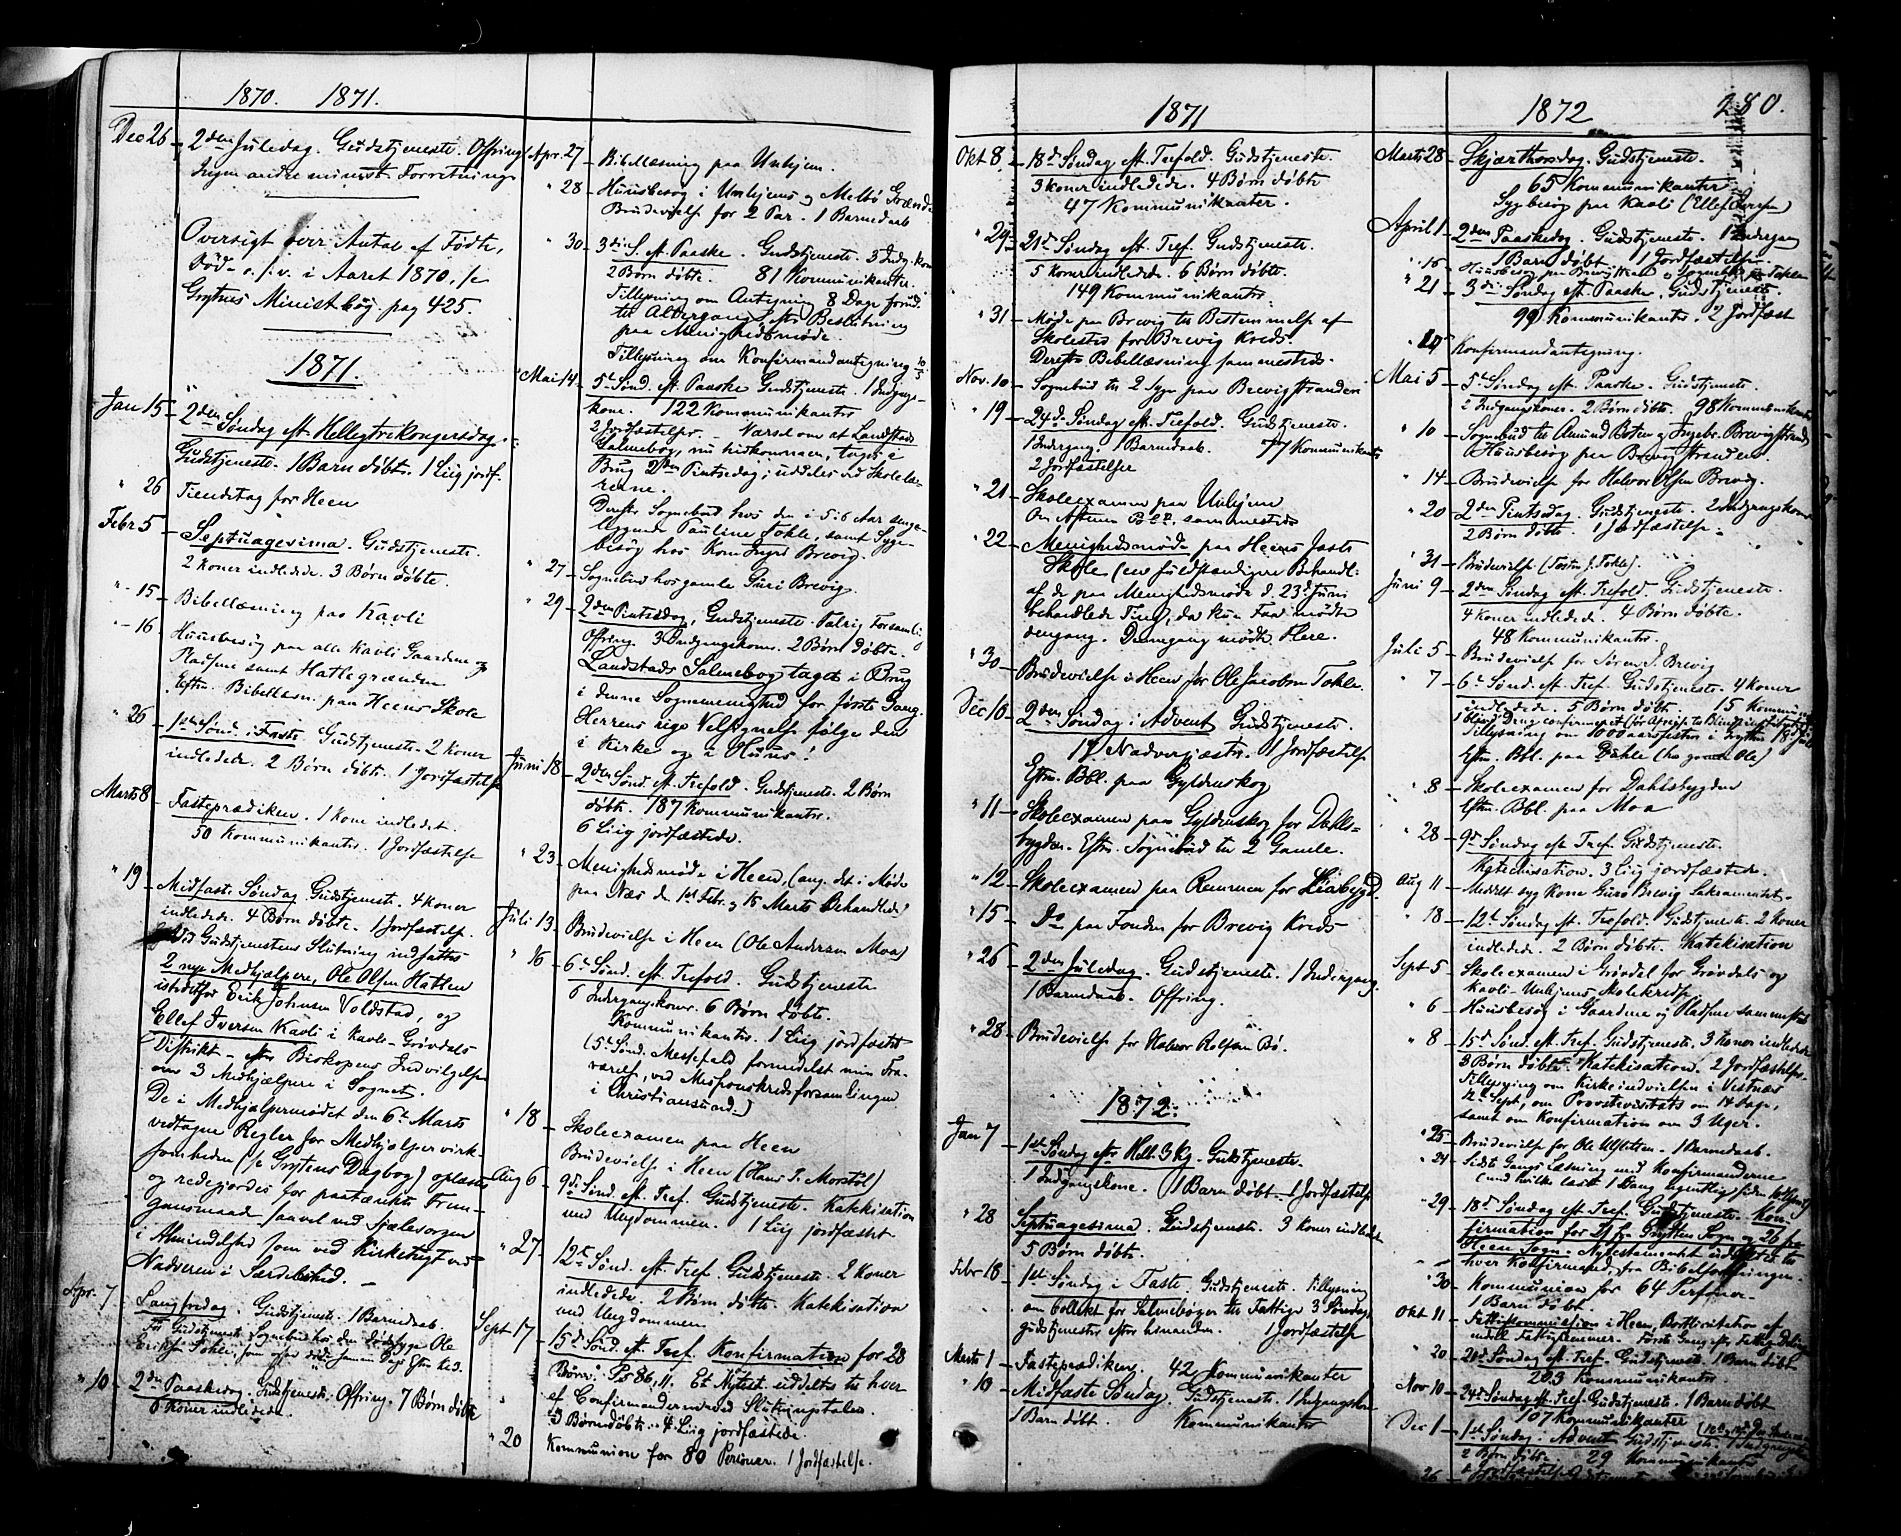 1870. 1871.
Dec 26 2den Juledag. Gudstjeneste. Offring
Ingen andre minist. Forretninger
Oversigt over Antal af Fødte,
Døde o.s.v. i Aaret 1870, se
Gryttens Ministbog pag 425.
1871.
Jan 15 2den Søndag eft. Helligtrekongersdag.
Gudstjeneste. 1 Barn døbt. 1 Liig jordf.
" 26 Tiendetag for Heen
Febr 5 Septuagesima. Gudstjeneste.
2 koner indledede. 3 Børn døbte.
" 15 Bibellæsning paa Kavli
" 16 Huusbesøg paa alle Kavli Gaardene og
Pladsene samt Hattegrænden
Eftm. Bibellæsn. paa Heens Skole
" 26 1ste Sønd. i Faste Gudstjeneste. 2 koner
indledede. 2 Børn døbte. 1 Jordfæstelse
Marts 8 Fasteprædiken. 1 kone indledet.
50 Kommunikanter. 1 Jordfæstelse
" 19 Midfaste Søndag Gudstjeneste. 4 koner
indledede. 4 Børn døbte. 1 Jordfæstelse.
Ved Gudstjenestens Slutning indsattes
2 nye Medhjælpere, Ole Olsen Hatten
istedetfor Erik Johnsen Voldstad, og
Ellef Iversen Kavli i Kavli-Grøvdals
Distrikt - efter Biskopens Indvilgelse
om 3 Medhjælpere i Sognet.
De i Medhjælpermødet den 6te Marts
vedtagne Regler for Medhjælpervirk-
somheden (se Gryttens Dagbog) oplæstes
og redegjordes for paatænkte Frem-
gangsmaade saavel ved Sjælesorgen
i Almindelighed som ved Kirketugt ved
Nadveren i Særdeleshed.
Apr. 7 Langfredag. Gudstjeneste. 1 Barnedaab.
Før Gudstjenest. Sognebud hos den dødssyge Ole
" 10 2den Paaskedag. Gudstjeneste. Offring. 7 Børn døbte
6 Koner indledede.
Apr. 27 Bibellæsning paa Unhjem.
" 28 Huusbesøg i Unhjems og Melbø Grænde
Brudevielse for 2 Par. 1 Barnedaab
" 30 3die S. eft. Paaske. Gudstjeneste. 3 Indg. kon
2 Børn døbte. 81 Kommunikanter.
Tillysning om Antegning 8 Dage forud
til Altergang efter Beslutning
paa Menighedsmøde.
Tillysning om Konfirmandantegning 10/5
Mai 14 5te Sønd. eft. Paaske Gudstjeneste. 1 Indgangs-
kone. 122 Kommunikanter
2 Jordfæstelser. Varsel om at Landstads
Salmebog, nu hidkommen, tages i
Brug 2den Pintsedag; uddeles ved Skolelæ-
rerne.
Derefter Sognebud hos den i 5 à 6 Aar senge-
liggende Pauline Tokle, samt Syge-
besøg hos Kone Ingeb. Brevig.
" 27 Sognebud hos gamle Guri Brevig.
" 29 2den Pintsedag, Gudstjeneste. Talrig Forsamling
Offring. 3 Indgangskoner. 2 Børn døbte.
Landstads Salmebog taget i Brug
i denne Sognemenighed for første Gang.
Herrens rige Velsignelse følge den
i Kirke og i Huus!
Juni 18 2den Sønd. eft. Trefold. Gudstjeneste. 2 Børn
døbte. 187 Kommunikanter.
6 Liig jordfæstede.
" 23 Menighedsmøde i Heen, (ang. det i Møde
paa Næs d. 1ste Febr. og 15 Marts Behandlede)
Juli 13 Brudevielse i Heen (Ole Andersen Moa)
" 16 6te Sønd. eft. Trefold. Gudstjeneste
6 Indgangskoner. 6 Børn døbte.
Kommunikanter. 1 Liig jordfæstet
(5te Sønd. Messefald formedelst min Fra-
værelse ved Missionskredsforsamlingen
i Christianssund.)
" 18 Skoleexamen paa Heen
Brudevielse i Heen (Hans P. Morstøl)
Aug 6 9de Sønd. eft. Tref. Gudstjeneste. Katekisation
med Ungdommen. 1 Liig jordfæstet
" 27 12te Sønd. eft. Tref. Gudstjeneste. 2 Koner
indledede. 2 Børn døbte. Katekisation
med Ungdommen
Sept 17 15de Sønd. eft. Tref. Konfirmation for 28
Børn; Ps 86, 11. Et Nytest. uddeltes til hver
af Confirmanderne ved Slutningstalen.
3 Børn døbte. 4 Liig jordfæstede.
" 20 Kommunion for 80 Personer. 1 Jordfæstelse.
1871
Okt 8 18de Søndag eft. Trefold. Gudstjeneste.
3 koner indledede. 4 Børn døbte
47 Kommunikanter.
" 29 21de Søndag eft. Tref. Gudstjeneste.
5 koner indledede. 6 Børn døbte.
149 Kommunikanter.
" 31 Møde paa Brevig til Bestemmelse af
Skolested for Brevig Kreds.
Derefter Bibellæsning sammesteds.
Nov. 10 Sognebud til 2 Syge paa Brevigstranden
" 19 24de Søndag eft. Trefold. Gudstjeneste.
1 Indgang. 1 Barnedaab. 77 Kommunikanter
2 Jordfæstelser
" 21 Skoleexamen paa Unhjem
Om Aftenen Bbl. sammesteds
" 22 Menighedsmøde paa Heens faste
Skole (en fuldstændigere Behandl.
af de paa Menighedsmøde d. 23de Juni
behandlede Ting, da kun Faa mødte
dengang. Dennegang mødte Flere.
" 30 Brudevielse i Heen for Ole Jacobsen Tokle.
Dec 10 2den Søndag i Advent Gudstjeneste.
17 Nadvergjæster. 1 Jordfæstelse
Eftm. Bbl. paa Gyldenskog
" 11 Skoleexamen paa Gyldenskog for Dahls-
bygden. Eftm. Sognebud til 2 Gamle.
" 12 Skoleexamen paa Remmem for Liabygd.
" 15 Do paa Fonden for Brevig Kreds
" 26 2den Juledag. Gudstjeneste. 1 Indgang.
1 Barnedaab. Offring.
" 28 Brudevielse for Halvor Rolfsen Bø.
1872.
Jan 7 1ste Søndag efter Hell. 3 Kg. Gudstjeneste.
1 Indgangskone. 1 Barn døbt. 1 Jordfæstelse
" 28 Septuagesima. Gudstjeneste. 3 koner indledet
5 Børn døbte.
Febr 18 1ste Søndag i Faste Gudstjeneste. Tillysning
om Collekt for Salmebøger til Fattige 3 Søndags
gudstjenester efter hinanden. 1 Jordfæstelse
Marts 1 Fasteprædiken. 42 Kommunikanter
" 10 Midfaste Søndag. Gudstjeneste. 1 Indgangskone
1 Barn døbt. Kommunikanter
1872 280.
Marts 28 Skjærthorsdag. Gudstjeneste.
65 Kommunikanter
Sygbesøg paa Kavli (Ellef Iversen)
April 1 2den Paaskedag. Gudstjeneste. 1 Indgang
1 Barn døbt 1 Jordfæstelse
" 21 3die Søndag eft. Paaske. Gudstjeneste.
99 Kommunikanter. 2 Jordfæst
Konfirmandantegning.
Mai 5 5te Søndag eft. Paaske. Gudstjeneste.
2 Indgangskoner. 2 Børn døbte. 98 Kommunikanter
" 10 Sognebud til Amund Boten og Ingebr. Brevigstrand
Huusbesøg paa Brevigstranden
" 14 Brudevielse for Halvor Olsen Brevig.
" 20 2den Pintsedag. Gudstjeneste. 2 Indgangskoner
2 Børn døbte. 1 Jordfæstelse.
" 31 Brudevielse (Torsten J. Tokle).
Juni 9 2den Søndag eft. Trefold. Gudstjeneste.
4 koner indledede. 4 Børn døbte.
48 Kommunikanter.
Juli 5 Brudevielse for Søren J. Brevig
" 7 6te Sønd. eft. Tref. Gudstjeneste. 4 koner
indledede. 5 Børn døbte. 15 Kommunik
Tillysning om 1000aarsfesten i Grytten 18de Juli
Eftm. Bbl. paa Dahle (hos gamle Ole)
" 8 Skoleexamen for Dahlsbygden
Eftm. Bbl. paa Moa
" 28 9de Søndag eft Tref. Gudstjeneste.
Katechisation. 3 Liig jordfæstede.
Aug 11 Meddelt syg Kone Guro Brevig Sakramentet.
" 18 12te Søndag eft. Trefold. Gudstjeneste. 2 koner
indledede. 2 Børn døbte. Katekisation
Sept 5 Skoleexamen i Grøvdal for Grøvdals og
Kavli-Unhjems Skolekredse
" 6 Huusbesøg i Gaardene og Pladsene sammesteds
" 8 15de Sønd. eft. Tref. Gudstjeneste. 3 koner indledede
3 Børn døbte. Katekisation. 2 Jordfæstelser.
Tillysning om Kirkeindvielsen i Vestnæs
12te Sept, om Provstevisitats om 14 Dage,
samt om Konfirmation om 3 Uger.
" 25 Brudevielse for Ole Ulfsten. 1 Barnedaab.
" 24 Sidste Gangs Læsning med Konfirmanderne
" 29 18de Søndag eft Tref. Gudstjeneste. Kon-
firmation for fra Gryttens Sogn og 26 fra
Heens Sogn. Nytestamentet uddeelt til
hver Konfirmand, fra Bibelforeningen.
" 30 Kommunion for 64 Personer.
1 Barn døbt.
Okt 11 Fattigkommission i Heen.
" 20 21de Søndag eft. Tref. Gudstjeneste. 1 Barn døbt
203 Kommunikanter
Nov. 10 24de Søndag eft. Tref. Gudstjeneste. 1 Barn døbt
107 Kommunikanter
Dec 1 1ste Søndag i Advent Gudstjeneste. 1 Indgangsk
2 Børn døbte. 29 Kommunikanter
26